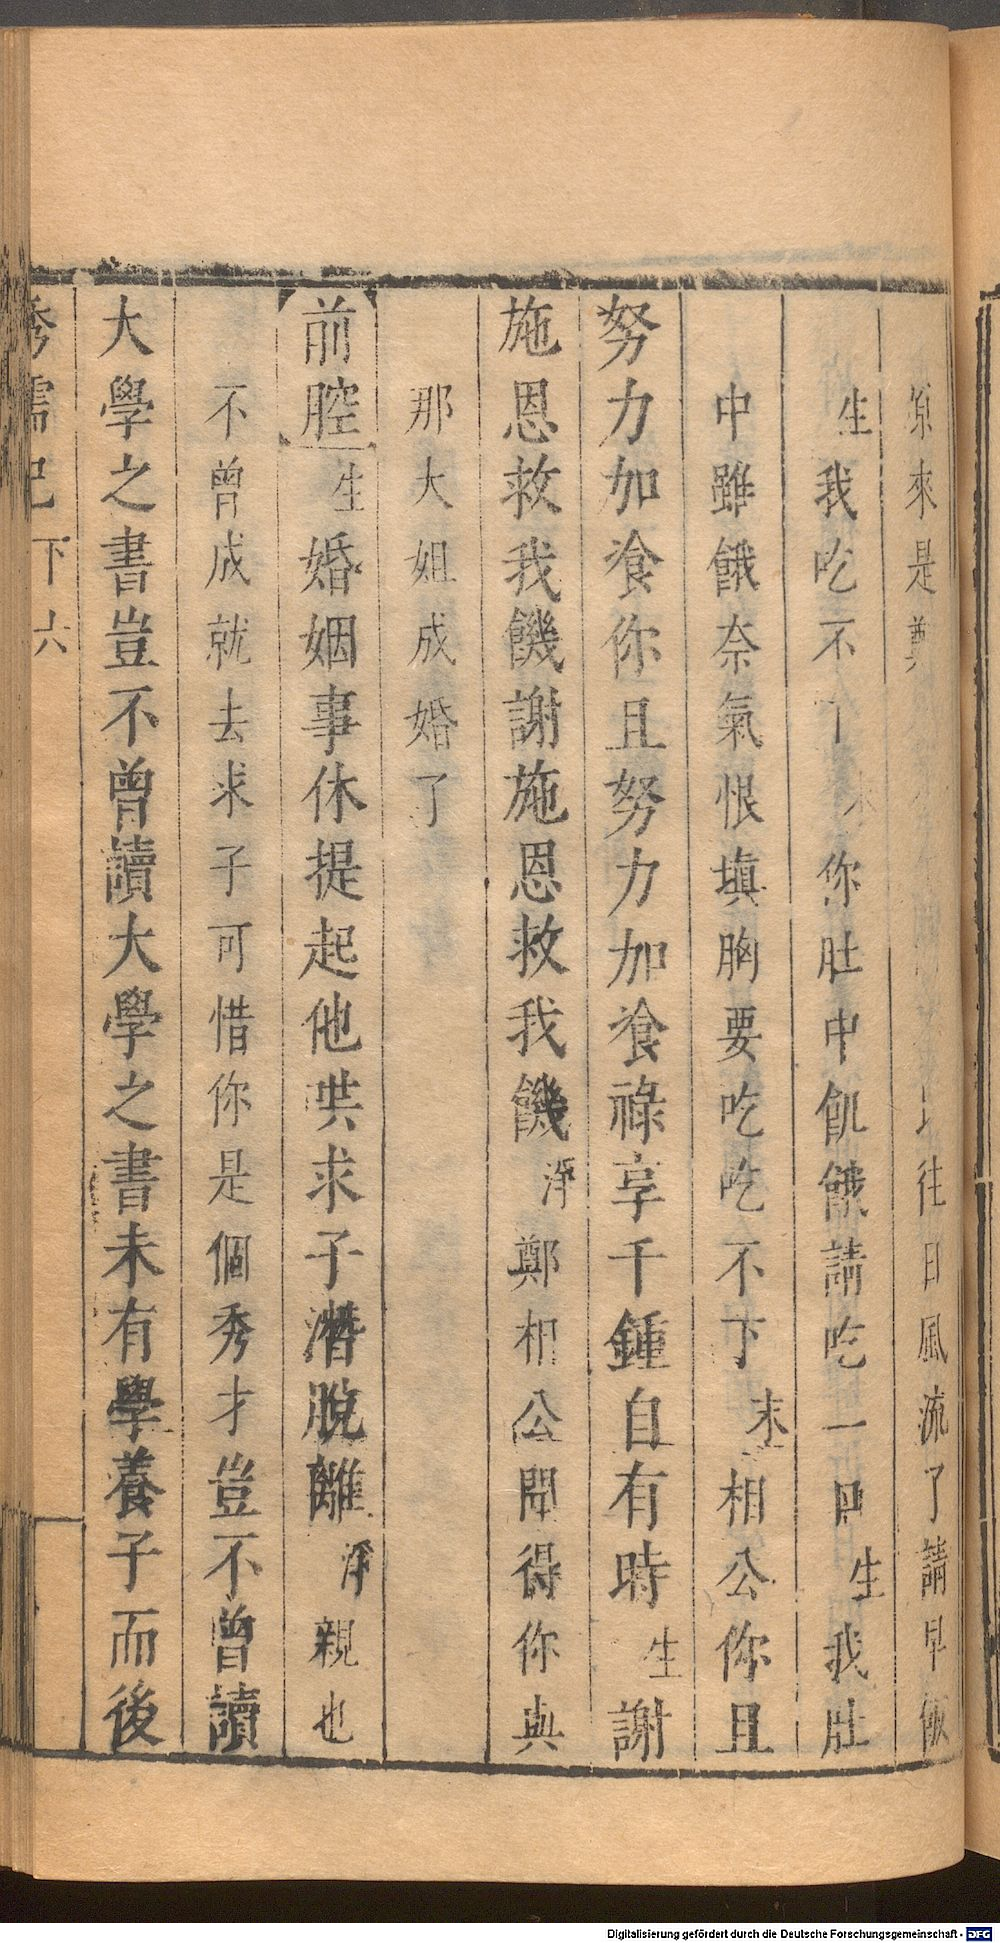 原來是往日風流了請早飯
生我吃不末你肚中飢餓請吃一口生我肚
中雖餓奈氣恨塡胸要吃吃不下末相公你且
努力加飡你且努力加飡祿享千鍾自有時生謝
施恩救我饑謝施恩救我饑淨鄭相公聞得你與
那大姐成婚了
前腔生婚姻事休提起他哄求子潛脫離淨親也
不曾成就去求子可惜你是個秀才豈不曾讀
大學之書豈不曾讀大學之書未有學養子而後
秀襦記下六
Digitalisierung gefördert durch die Deutsche Forschungsgemeinschaft - DFG